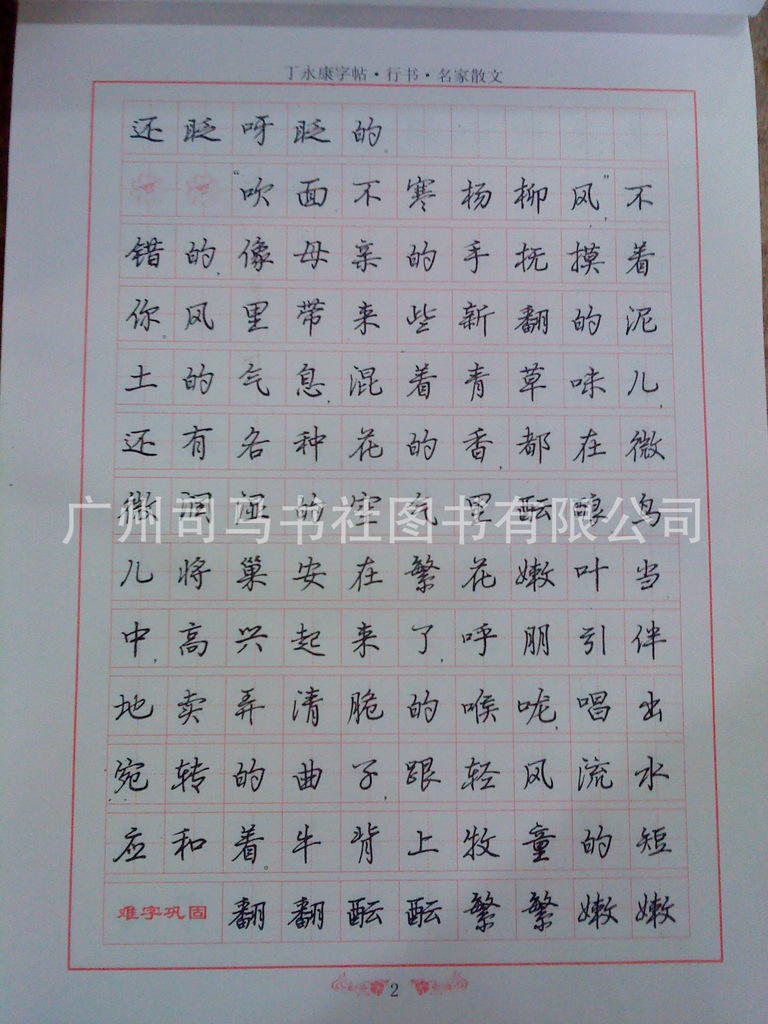 丁永康字帖·行书·名家散文
还眨呀眨的
“吹面不寒杨柳风”,不
错的,像母亲的手抚摸着
你,风里带来些新翻的泥
土的气息,混着青草味儿,
还有各种花的香,都在微
微润湿的空气里酝酿,鸟
儿将巢安在繁花嫩叶当
中,高兴起来了,呼朋引伴
地卖弄清脆的喉咙,唱出
宛转的曲子,跟轻风流水
应和着。牛背上牧童的短
难字巩固 翻翻酝酝繁繁嫩嫩
2
广州司马书社图书有限公司